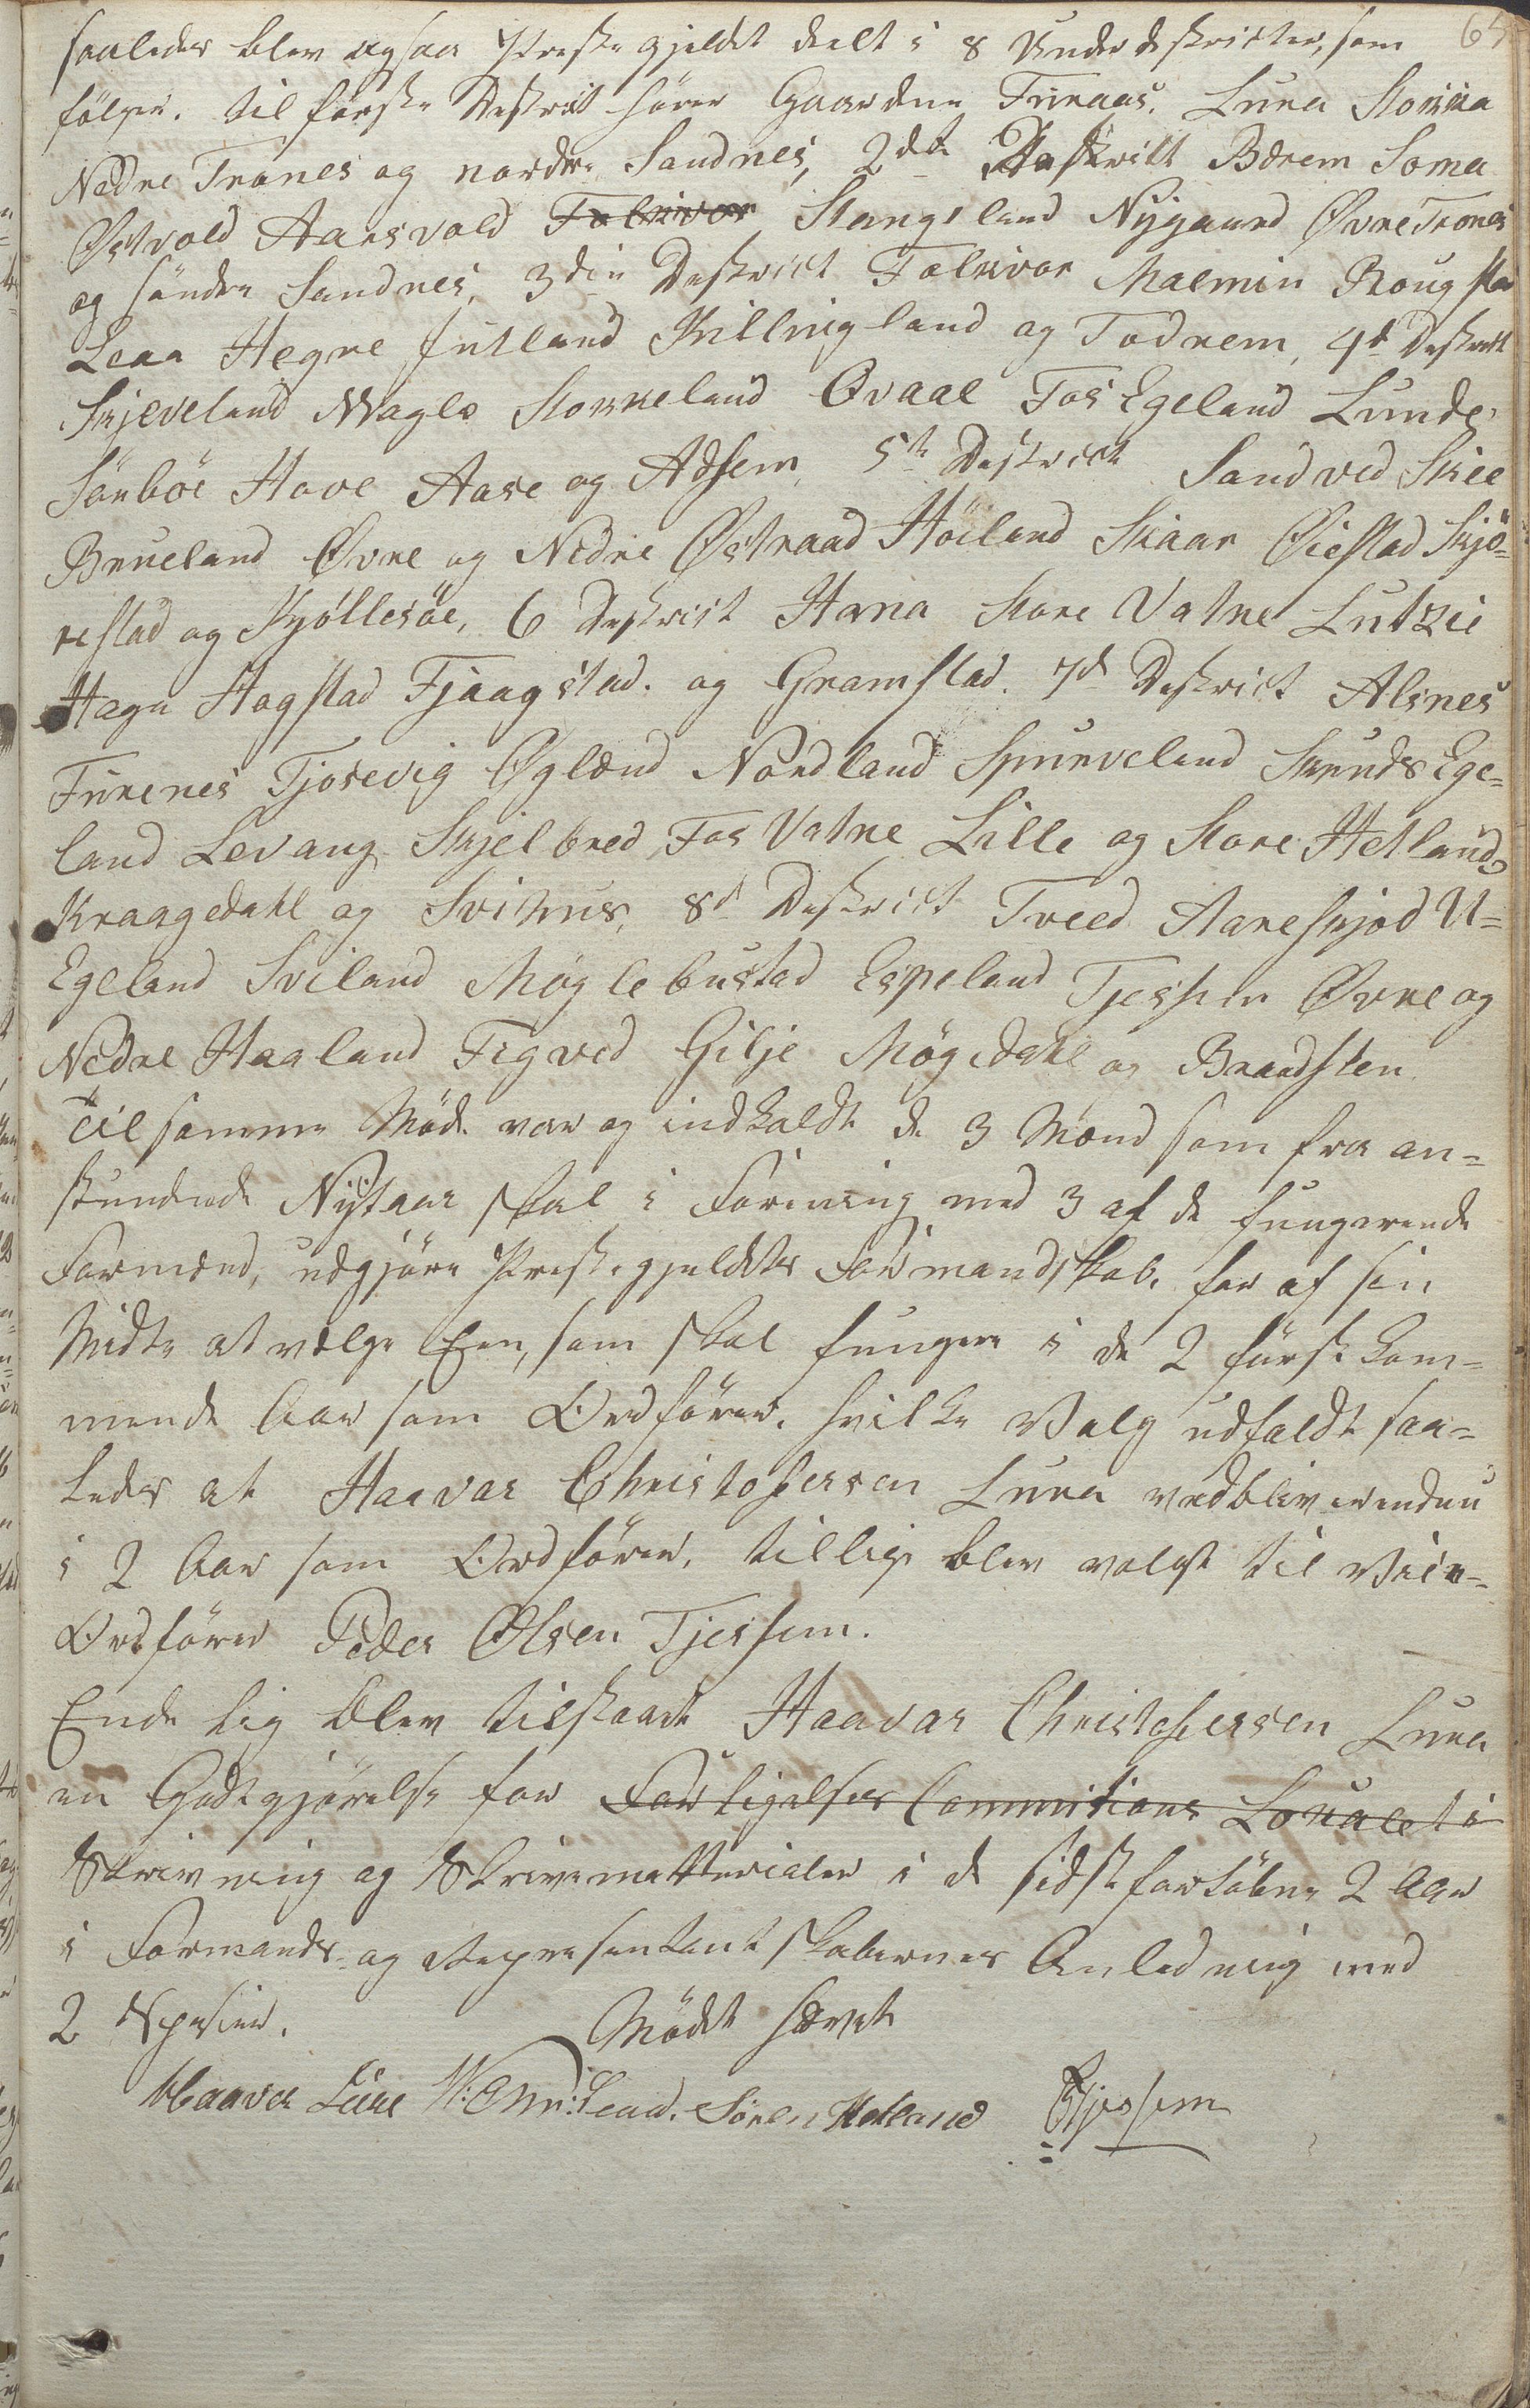 saaledes blev ogsaa Præstegjeldet deelt i 8 Underdestricter, som
følger. til første Destrict hører Gaardene Furaas. Lura Stokka
Nedre Tranes og nordre Sandnes, 2det Destrikt Bærem Soma
Østvold Aarsvold Folkvor Stangeland Nygaard Øvre Trones
og søndre Sandnes, 3die Destrict Folkvor Malmin Rougsta
Leaa Hegre Jutland Kyllingland og Todnem, 4de Destrikt
Skjeveland Wagle Stokkeland Ovaal Fos Egeland Lunde
Sønbøe Hove Aase og Adsem, 5te Destrict Sandved Skee
Brueland Øvre og Nedre Østraad Høiland Skaar Øiestad Skjö-
restad og Kyöllesöe, 6 Destrict Hana Store Vatne Lutzie
Hage Hogstad Tjaagstad. og Gramstad. 7de Destrict Alsnes
Furenes Tjosevig Øglænd Nordland Spurveland Skruds Ege-
land Levang Skjelbred Fos Vatne Lille og Store Hetland
Kraagedahl og Svihus, 8de Destrict Tveed Aareskjod U-
Egeland Sviland Møglebustad Espeland Tjessem Øvre og
Nedre Haaland Figved Gilje Møgedahl og Braadsten
Til samme Møde var og indkaldt de 3 Mænd som fra an-
stundende Nytaar skal i Forening med 3 af de fungerende
Formænd, udgjøre Præstegjeldets Formandskab, for af sin
Midte at vælge Een, som skal fungere i de 2 først kom-
mende Aar som Ordfører, hvilke Valg udfaldt saa-
ledes at Haavar Christophersen Lura vedbliver endnu
i 2 Aar som Ordfører, tillige blev valgt til Vice-
Ordfører Peder Olsen Tjessem.
Endelig blev tilstaaet Haavar Christophersen Lura
en Godtgjørelse for Forligelses Commissions Localet i
Skrivning og Skrivematterialer i de sidstforløbne 2 Aar
i Formands- og Repræsentantskabernes Anledning med
2 Spesier. Mødet hævet
Haavar Lura Søren Hetland Tjessem